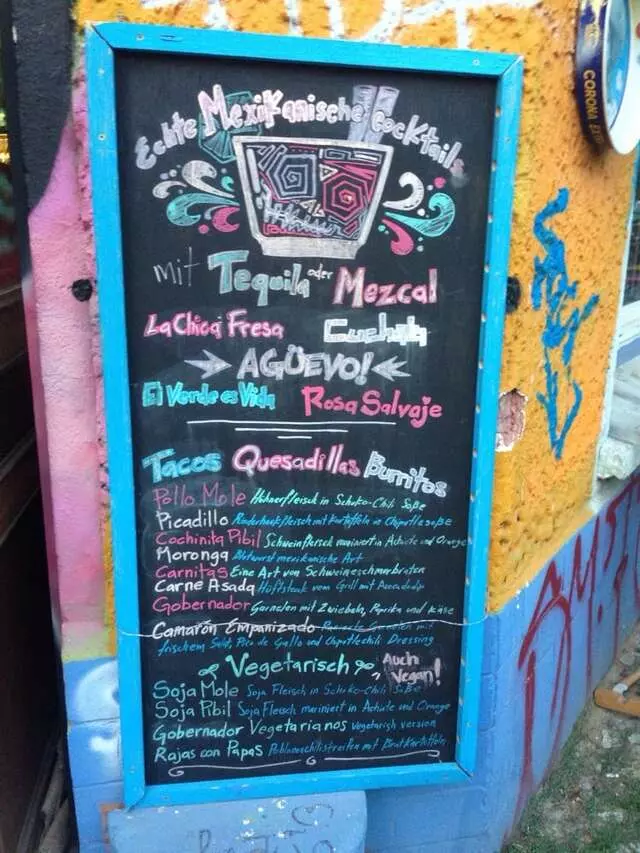 CORONA
Echte Mexikanische Cocktails
mit Tequila oder Mezcal
La Chica Fresa
AGÜEVO!
El Verde es Vida Rosa Salvaje
Tacos Quesadillas Burritos
Pollo Mole Hühnerfleisch in Schoko-Chili Soße
Picadillo Rinderhackfleisch mit Kartoffeln in Chipotlesoße
Cochinita Pibil Schweinefleisch mariniert in Achiote und Orange
Moronga Blutwurst mexikanische Art
Carnitas Eine Art von Schweineschmorbraten
Carne Asada Hüftsteak vom Grill mit Avocadodip
Gobernador Garnelen mit Zwiebeln, Paprika und Käse
Camarón Empanizado Panierte Garnelen mit
frischem Salat, Pico de Gallo und Chipotlechili Dressing
Vegetarisch Auch
Vegan!
Soja Mole Soja Fleisch in Schoko-Chili Soße
Soja Pibil Soja Fleisch mariniert in Achiote und Orange
Gobernador Vegetarianos Vegetarisch version
Rajas con Papas Poblanochilistreifen mit Bratkartoffeln